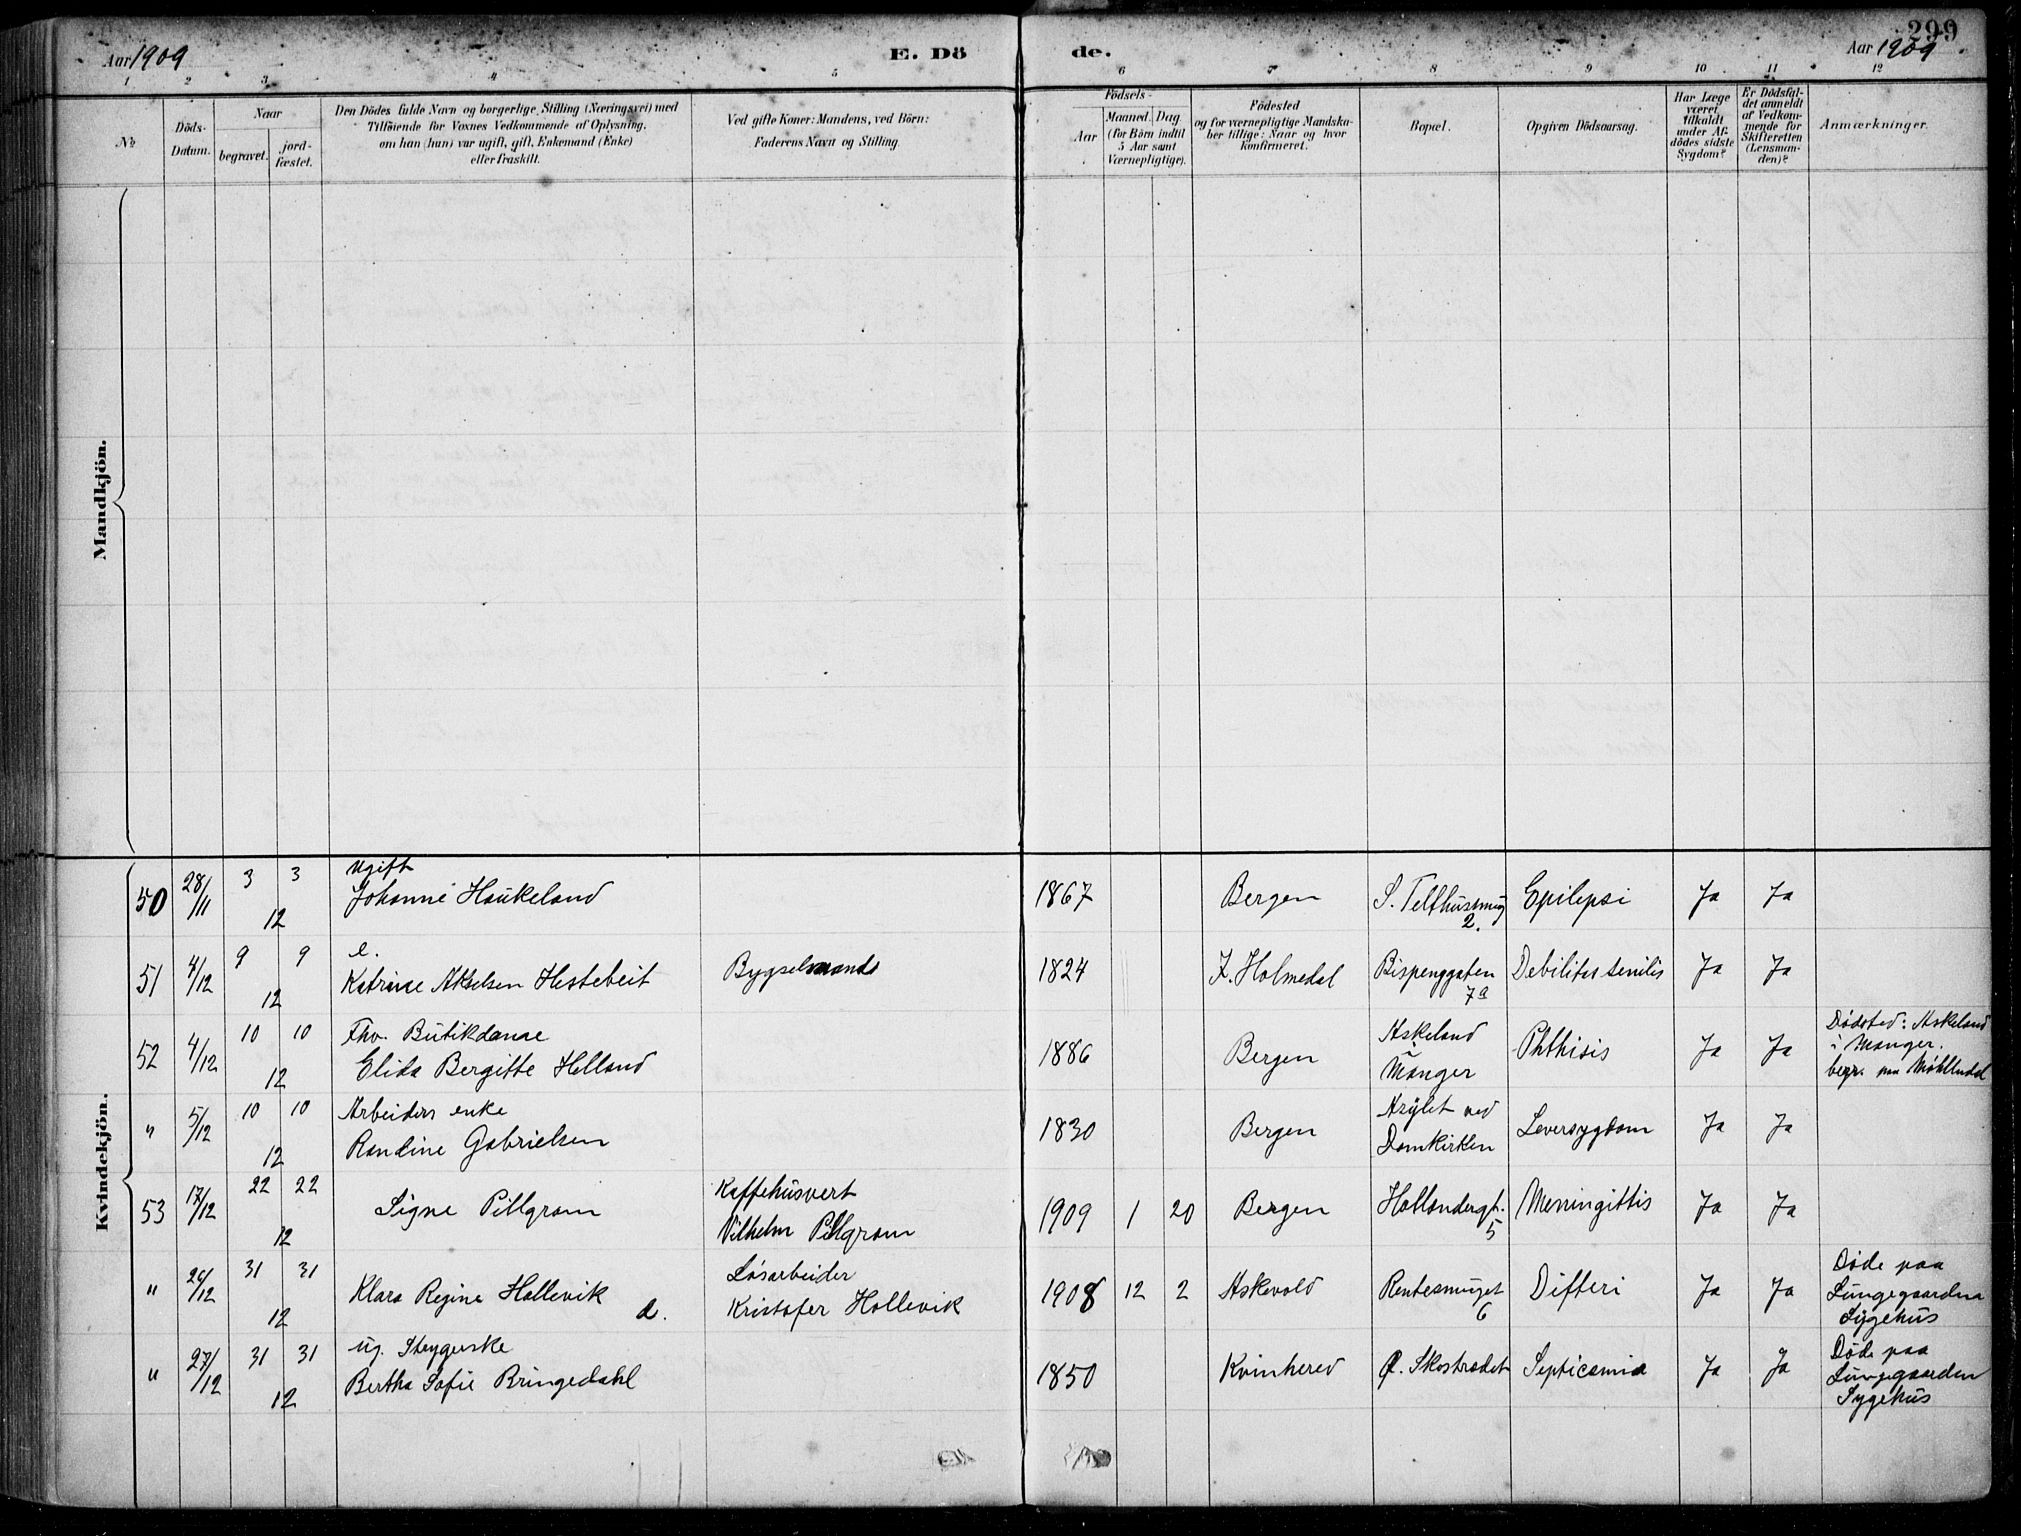 299
Aar 1909
E. Dö
de.
Aar 1909
1 2 3 4 5 6 7 8 9 10 11 12
No.
Döds-Datum.
Naar
begravet.
jord-fæstet.
Den Dödes fulde Navn og borgerlige Stilling (Næringsvei) med
Tilföiende for Voxnes Vedkommende af Oplysning,
om han (hun) var ugift, gift, Enkemand (Enke)
eller fraskilt.
Ved gifte Koner: Mandens, ved Börn:
Faderens Navn og Stilling.
Födsels-
Aar
Maaned. Dag
(for Börn indtil
5 Aar samt
Værnepligtige).
Födested
og for værnepligtige Mandska-
ber tillige: Naar og hvor
konfirmeret.
Bopæl.
Opgiven Dödsaarsag.
Har Læge
været
tilkaldt
under Af-
dödes sidste
Sygdom?
Er Dödsfal-
det anmeldt
af Vedkom-
mende for
Skifteretten
(Lensman-
den)?
Anmærkninger.
Mandkjön.
Kvindekjön.
50 28/11 3 3 12 Ugift
Johanne Haukeland 1867 Bergen S. Telthusmug 2. Epilepsi Ja Ja
51 4/12 9 9 12 e.
Katrine Akselsen Hestebeit Bygselmands 1824 Y. Holmedal Bispenggaten 7a Debilitas senilis Ja Ja
52 4/12 10 10 12 Fhv. Butikdame
Elida Bergitte Helland 1886 Bergen Askeland Manger Phthisis Ja Ja Dødsted: Askeland
i Manger.
begr. paa Møhlendal
" 5/12 10 10 12 Arbeiders enke
Randine Gabrielsen 1830 Bergen Asylet ved
Domkirken Leversygdom Ja Ja
53 17/12 22 22 12 Signe Pillgram Kaffehusvert
Vilhelm Pillgram 1909 1 20 Bergen Hollendergt. 5 Meningittis Ja Ja
" 26/12 31 31 12 Klara Regine Hallevik d. Løsarbeider
Kristofer Hallevik 1908 12 2 Askevold Rentesmuget 6 Difteri Ja Ja Døde paa
Lungegaardens
Sygehus
" 27/12 31 31 12 ug. Strygerske
Bertha Sofie Bringedahl 1850 Kvinherred Ø. Skostrædet Septicæmia Ja Ja Døde paa
Lungegaarden
Sygehus